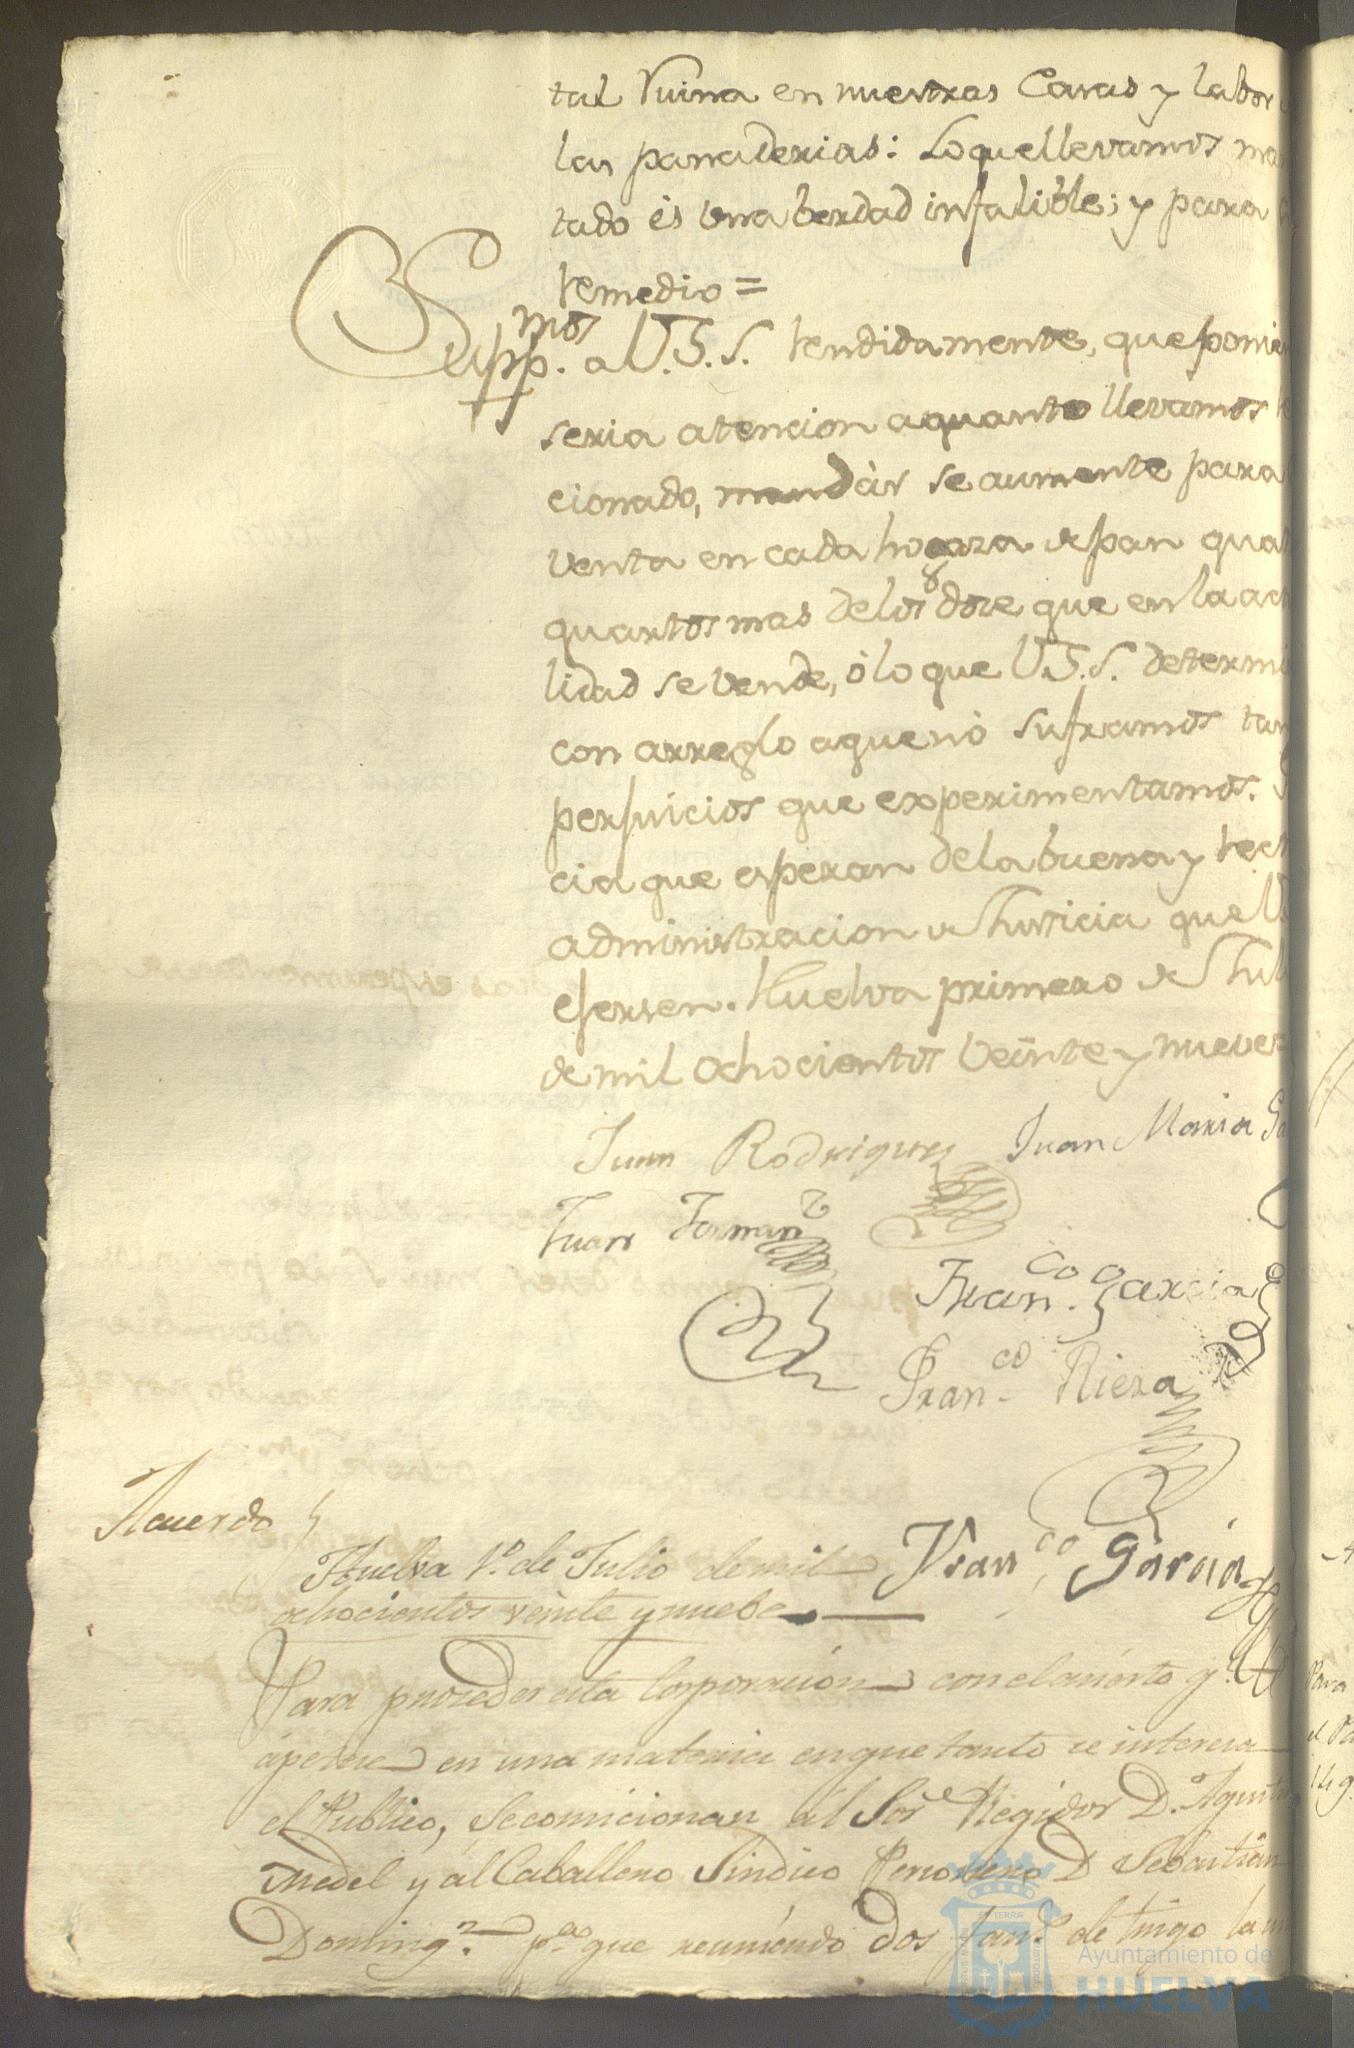 tal Ruina en nuestras Casas y labor
las panaderias: Loquellevamos ma
tado és una berdad infalible; y para
remedio=
Supp.mos a V.S.S. rendidamente, queponien
seria atencion aquanto llevamos re
cionado, mandàr se aumente para
venta en cada hogaza de pan quat
quartos mas delos doze que en la actu
lidad se vende, ó lo que V.S.S. determi
con arreglo aque nó suframos tan
perjuicios que experimentamos.
cia que esperan dela buena y rect
administracion de Justicia que V
ejersen. Huelva primero de Jul
de mil ochocientos veinte y nueve=
Juan Rodriguez Juan Maria Ga
Juan Fernanz
Fran.co Garcia
Fran.co Riera
Acuerdo
Huelva 1.º de Julio demil Fran.co Garcia
ochocientos veinte y nuebe
Para proceder esta Corporacion con el acierto q.e
ápetece en una materia enque tanto se interesa
el Publico, se comicionan al Sor Regidor D.n Agustin
Medel y al Caballero Sindico Personero D Sebastian
Doming.z p.a que reuniendo dos fan.s de trigo la m
Para
el Pa
14 q
Ayuntamiento de
HUELVA